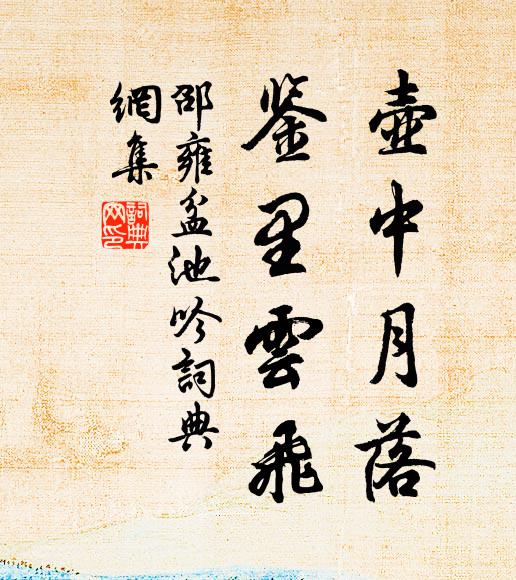 壺中月落
鉴里雲飛
邵雍盆池吟詞典
網集
詞典
网印